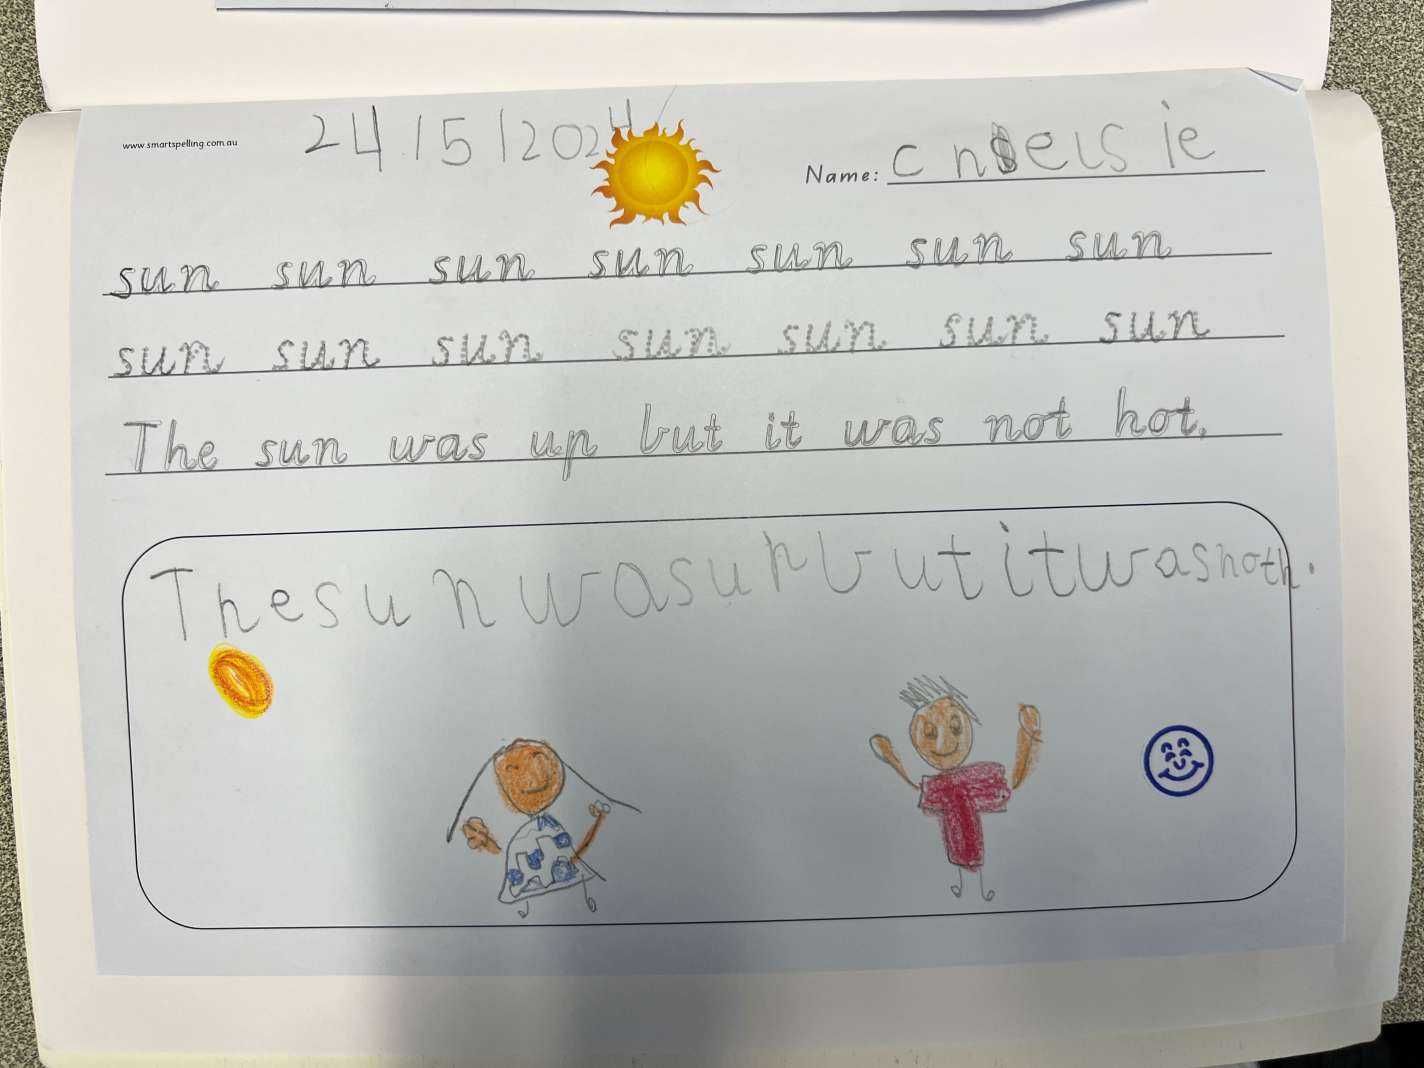 www.smartspelling.com.au
24/5/2024
Name: cnelsie
sun sun sun sun sun sun sun
sun sun sun sun sun sun sun
The sun was up but it was not hot.
Thesunwasunbutitwasnoth.